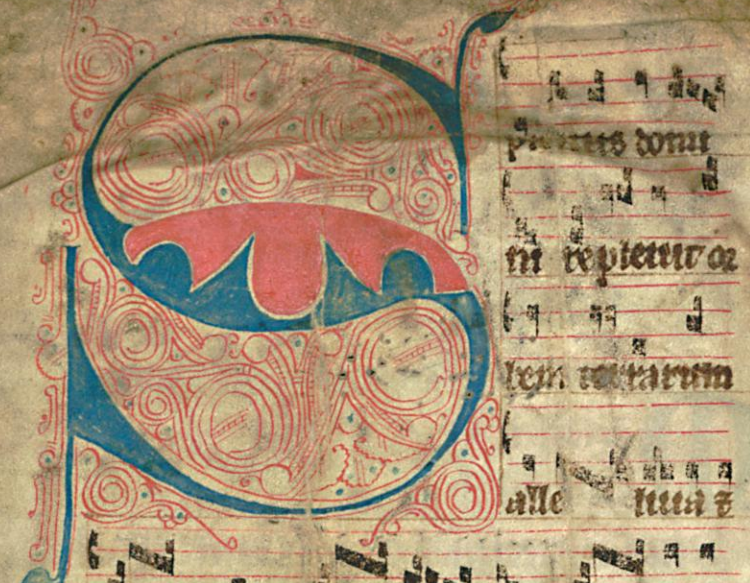 S
piritus domi
ni repleuit or
bem terrarum
alle luia &